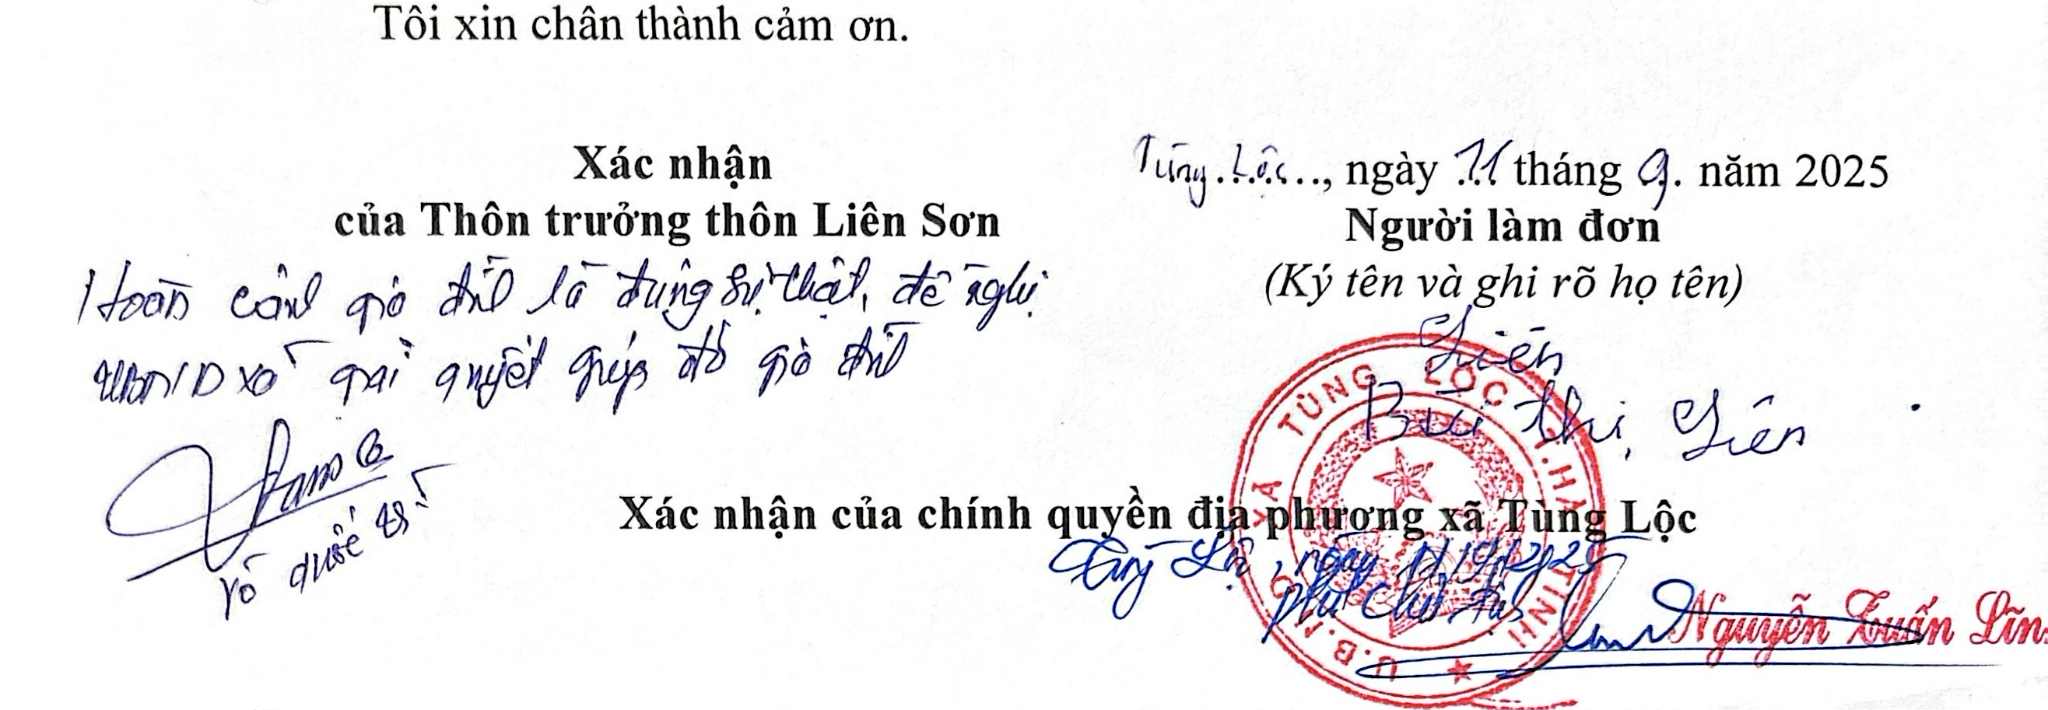 Tôi xin chân thành cảm ơn.
Xác nhận
của Thôn trưởng thôn Liên Sơn
Hoàn cảnh gia đình là đúng sự thật, đề nghị
UBND xã giải quyết giúp đỡ gia đình
Võ Quốc
Tùng Lộc, ngày 11 tháng 9 năm 2025
Người làm đơn
(Ký tên và ghi rõ họ tên)
Liên
Bùi Thị Liên
Xác nhận của chính quyền địa phương xã Tùng Lộc
Tùng Lộc, ngày 11/9/2025
Phó Chủ tịch
Nguyễn Tuấn Lĩn
U.B.N.D XÃ TÙNG LỘC T.HÀ TĨNH